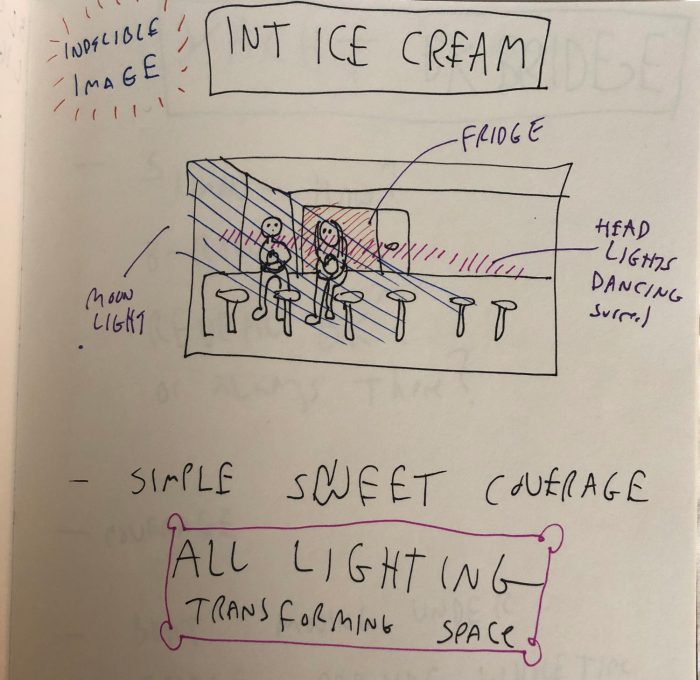 INDELIBLE
IMAGE
INT ICE CREAM
FRIDGE
MOON
LIGHT
HEAD
LIGHTS
DANCING
surreal
- SIMPLE SWEET COVERAGE
ALL LIGHTING
TRANSFORMING SPACE